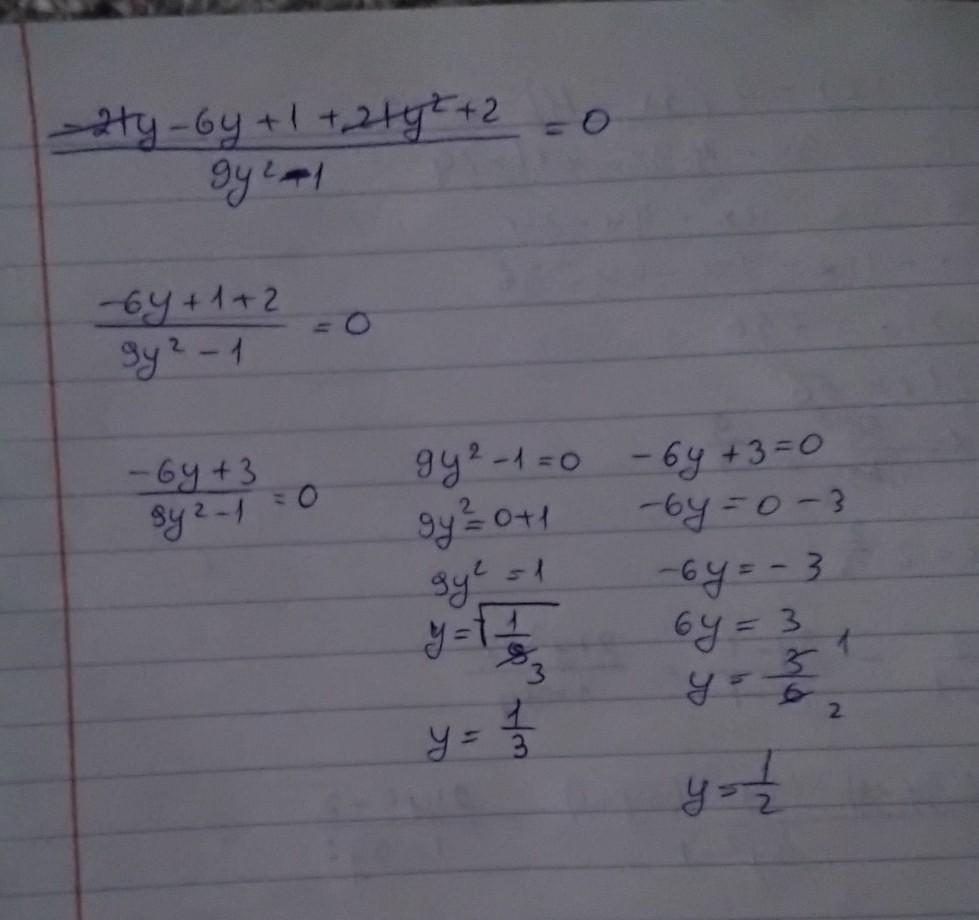 -21y - 6y + 1 + 21y² + 2 / 9y² - 1 = 0
-6y + 1 + 2 / 9y² - 1 = 0
-6y + 3 / 9y² - 1 = 0
9y² - 1 = 0
9y² = 0 + 1
9y² = 1
y = √1/9 3
y = 1/3
-6y + 3 = 0
-6y = 0 - 3
-6y = - 3
6y = 3
y = 3/6 1 2
y = 1/2